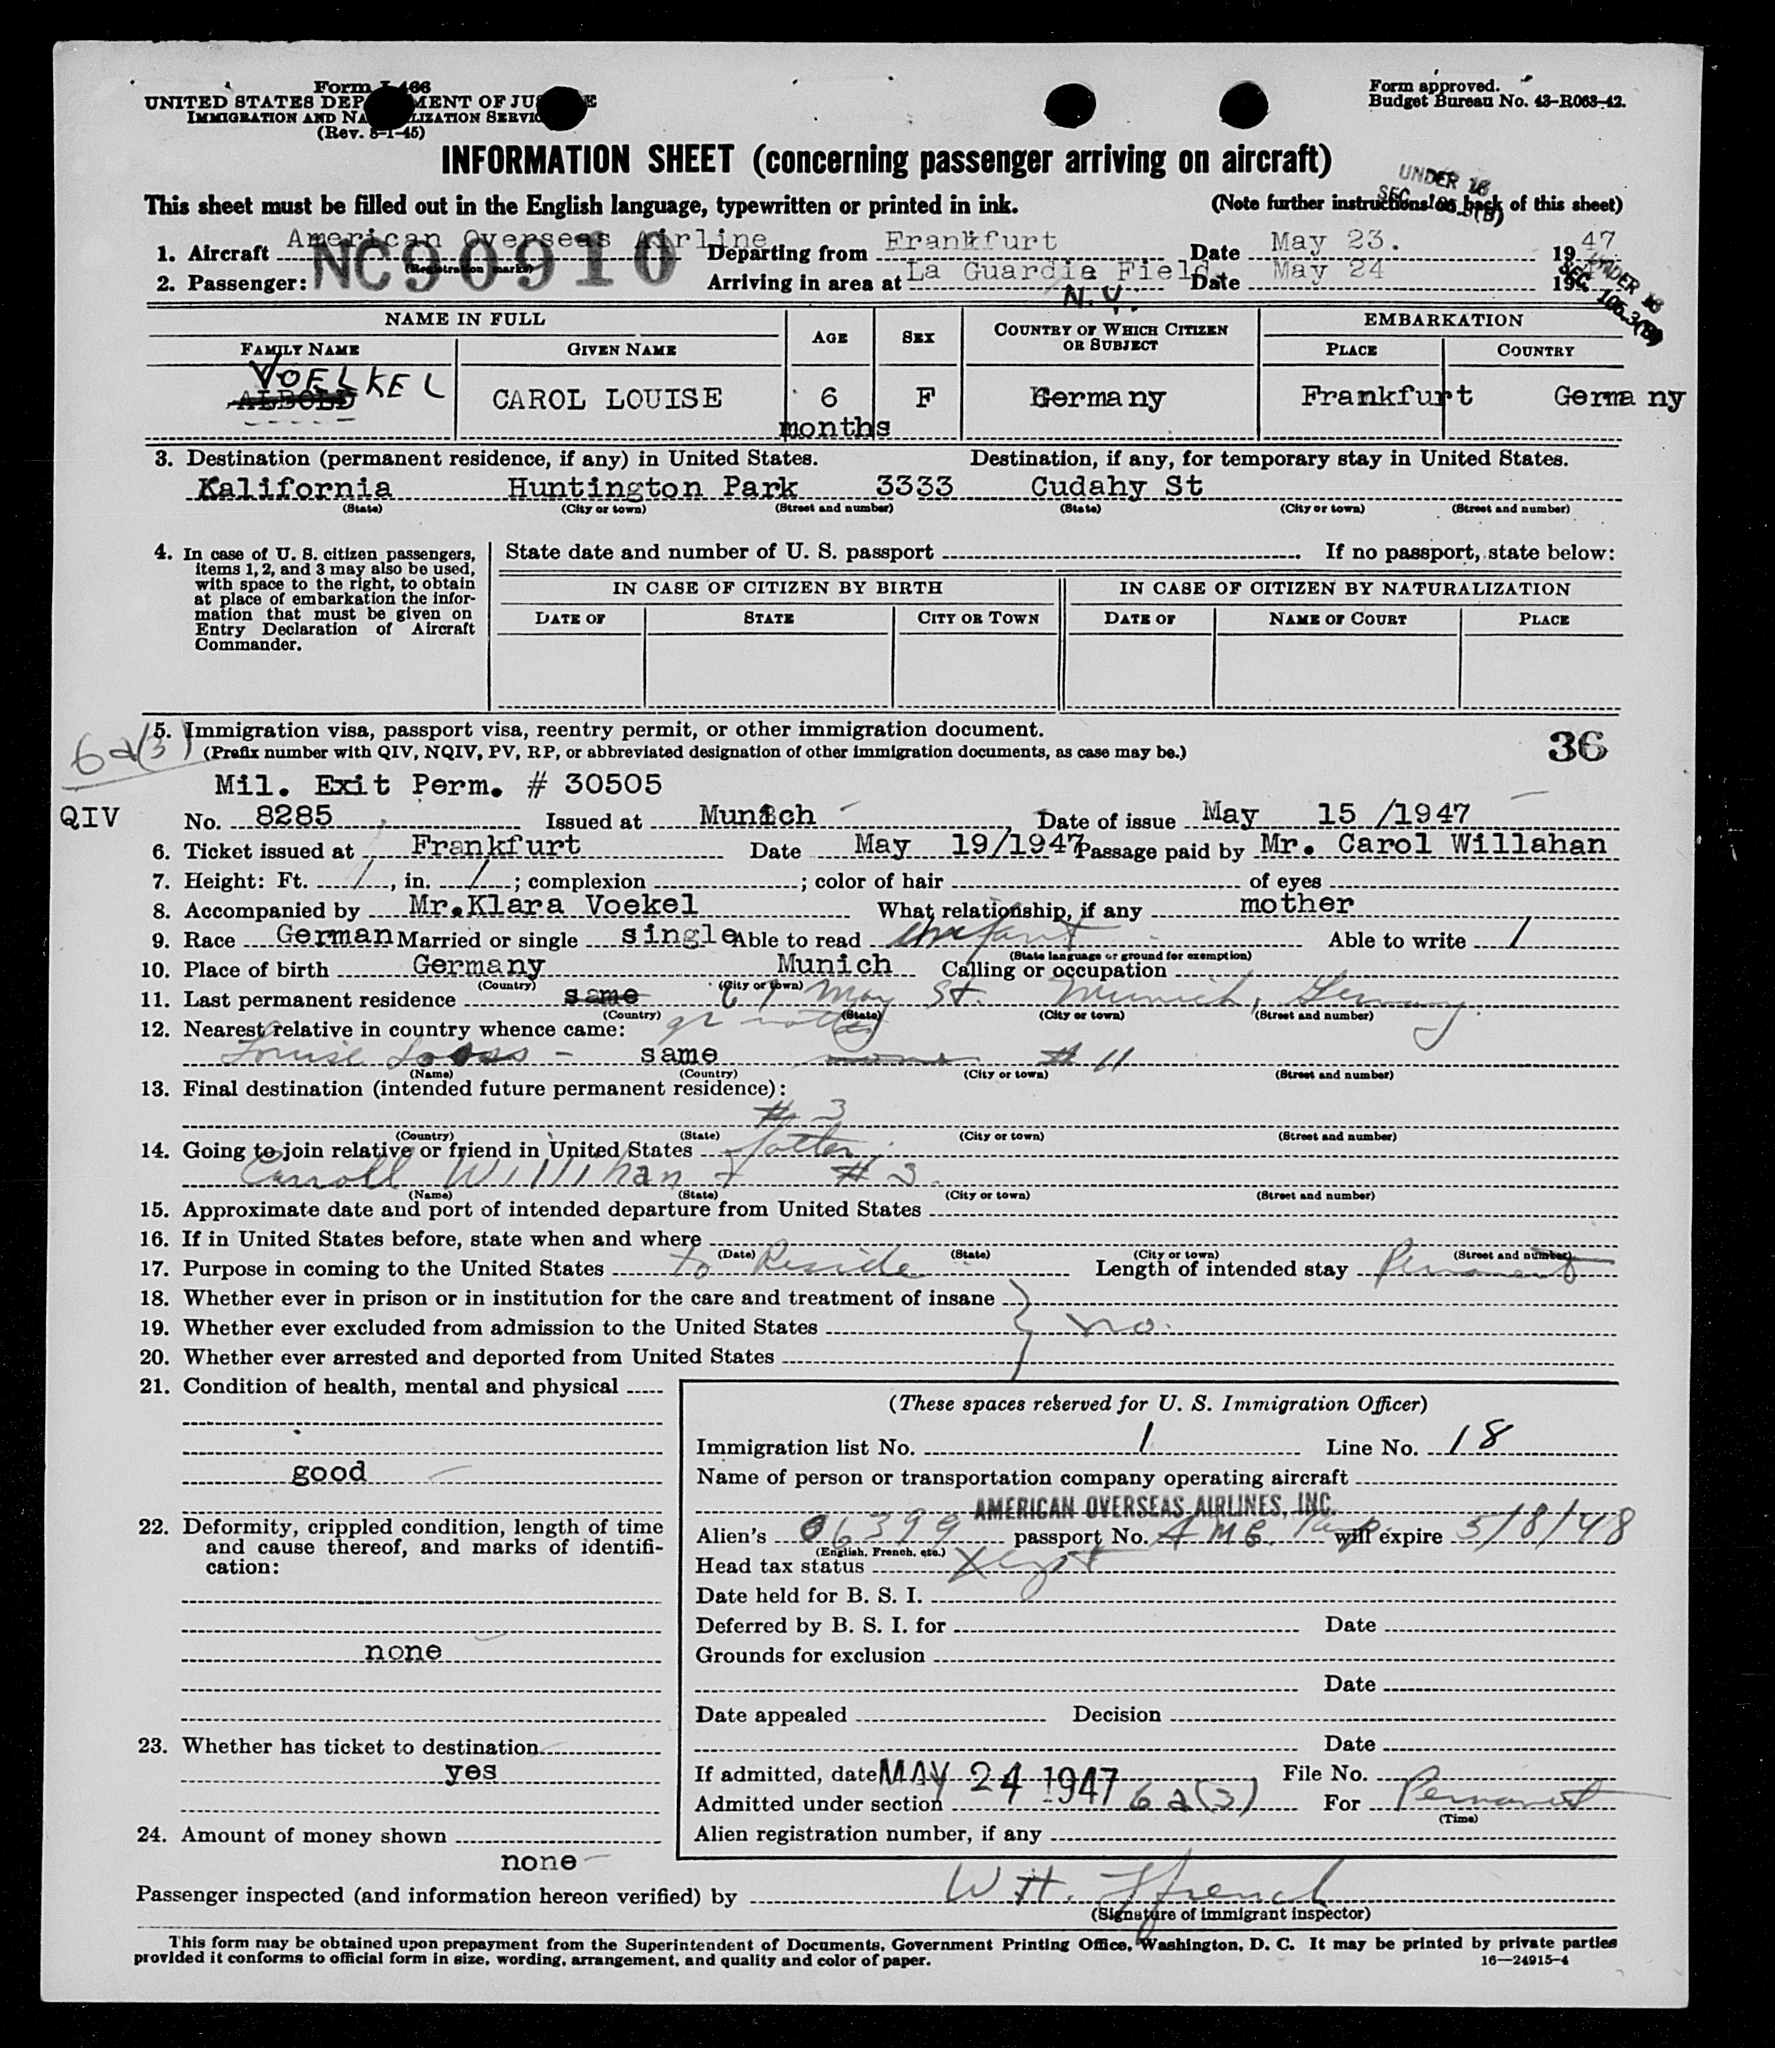 Form I-466
UNITED STATES DEPARTMENT OF JUSTICE
IMMIGRATION AND NATURALIZATION SERVICE
(Rev. 8-1-45)
Form approved.
Budget Bureau No. 43-R063-42.
INFORMATION SHEET (concerning passenger arriving on aircraft)
UNDER 16
SEC. 105.3(B)
This sheet must be filled out in the English language, typewritten or printed in ink. (Note further instructions on back of this sheet)
1. Aircraft American Overseas Airline Departing from Frankfurt Date May 23. 1947
(Registration marks)
NC90910
2. Passenger: Arriving in area at La Guardia Field. Date May 24 19
N.Y.
UNDER 16
SEC. 105.3(B)
NAME IN FULL AGE SEX COUNTRY OF WHICH CITIZEN OR SUBJECT EMBARKATION
FAMILY NAME GIVEN NAME PLACE COUNTRY
VOELKEL
ALBOLD CAROL LOUISE 6 F Germany Frankfurt Germany
months
3. Destination (permanent residence, if any) in United States. Destination, if any, for temporary stay in United States.
Kalifornia Huntington Park 3333 Cudahy St
(State) (City or town) (Street and number) (State) (City or town) (Street and number)
4. In case of U. S. citizen passengers,
items 1, 2, and 3 may also be used,
with space to the right, to obtain
at place of embarkation the infor-
mation that must be given on
Entry Declaration of Aircraft
Commander.
State date and number of U. S. passport If no passport, state below:
IN CASE OF CITIZEN BY BIRTH IN CASE OF CITIZEN BY NATURALIZATION
DATE OF STATE CITY OR TOWN DATE OF NAME OF COURT PLACE
6a(3)
5. Immigration visa, passport visa, reentry permit, or other immigration document.
(Prefix number with QIV, NQIV, PV, RP, or abbreviated designation of other immigration documents, as case may be.)
36
Mil. Exit Perm. # 30505
QIV No. 8285 Issued at Munich Date of issue May 15 /1947
6. Ticket issued at Frankfurt Date May 19/1947 Passage paid by Mr. Carol Willahan
7. Height: Ft. /, in. /; complexion ; color of hair of eyes
8. Accompanied by Mr.Klara Voekel What relationship, if any mother
9. Race German Married or single single Able to read infant Able to write /
(State language or ground for exemption)
10. Place of birth Germany Munich Calling or occupation
(Country) (City or town)
11. Last permanent residence same 61 May St. Munich, Germany.
(Country) (State) (City or town) (Street and number)
12. Nearest relative in country whence came: gr mother
Louise - same none # 11
(Name) (Country) (City or town) (Street and number)
13. Final destination (intended future permanent residence):
# 3
(Country) (State) (City or town) (Street and number)
14. Going to join relative or friend in United States father
Carroll Willihan # 3.
(Name) (State) (City or town) (Street and number)
15. Approximate date and port of intended departure from United States
16. If in United States before, state when and where
(Date) (State) (City or town) (Street and number)
17. Purpose in coming to the United States to Reside Length of intended stay Permanent
18. Whether ever in prison or in institution for the care and treatment of insane
19. Whether ever excluded from admission to the United States no.
20. Whether ever arrested and deported from United States
21. Condition of health, mental and physical
good
22. Deformity, crippled condition, length of time
and cause thereof, and marks of identifi-
cation:
none
23. Whether has ticket to destination
yes
24. Amount of money shown
none
(These spaces reserved for U. S. Immigration Officer)
Immigration list No. 1 Line No. 18
Name of person or transportation company operating aircraft
AMERICAN OVERSEAS AIRLINES, INC.
Alien's 06399 passport No. will expire 5/8/48
(English, French, etc.)
Head tax status Xempt
Date held for B. S. I.
Deferred by B. S. I. for Date
Grounds for exclusion
Date
Date appealed Decision
Date
If admitted, date MAY 24 1947 File No.
Admitted under section 6a(3) For Permanent
(Time)
Alien registration number, if any
Passenger inspected (and information hereon verified) by W.H. Ffrench
(Signature of immigrant inspector)
This form may be obtained upon prepayment from the Superintendent of Documents, Government Printing Office, Washington, D. C. It may be printed by private parties
provided it conforms to official form in size, wording, arrangement, and quality and color of paper. 16—24915-4